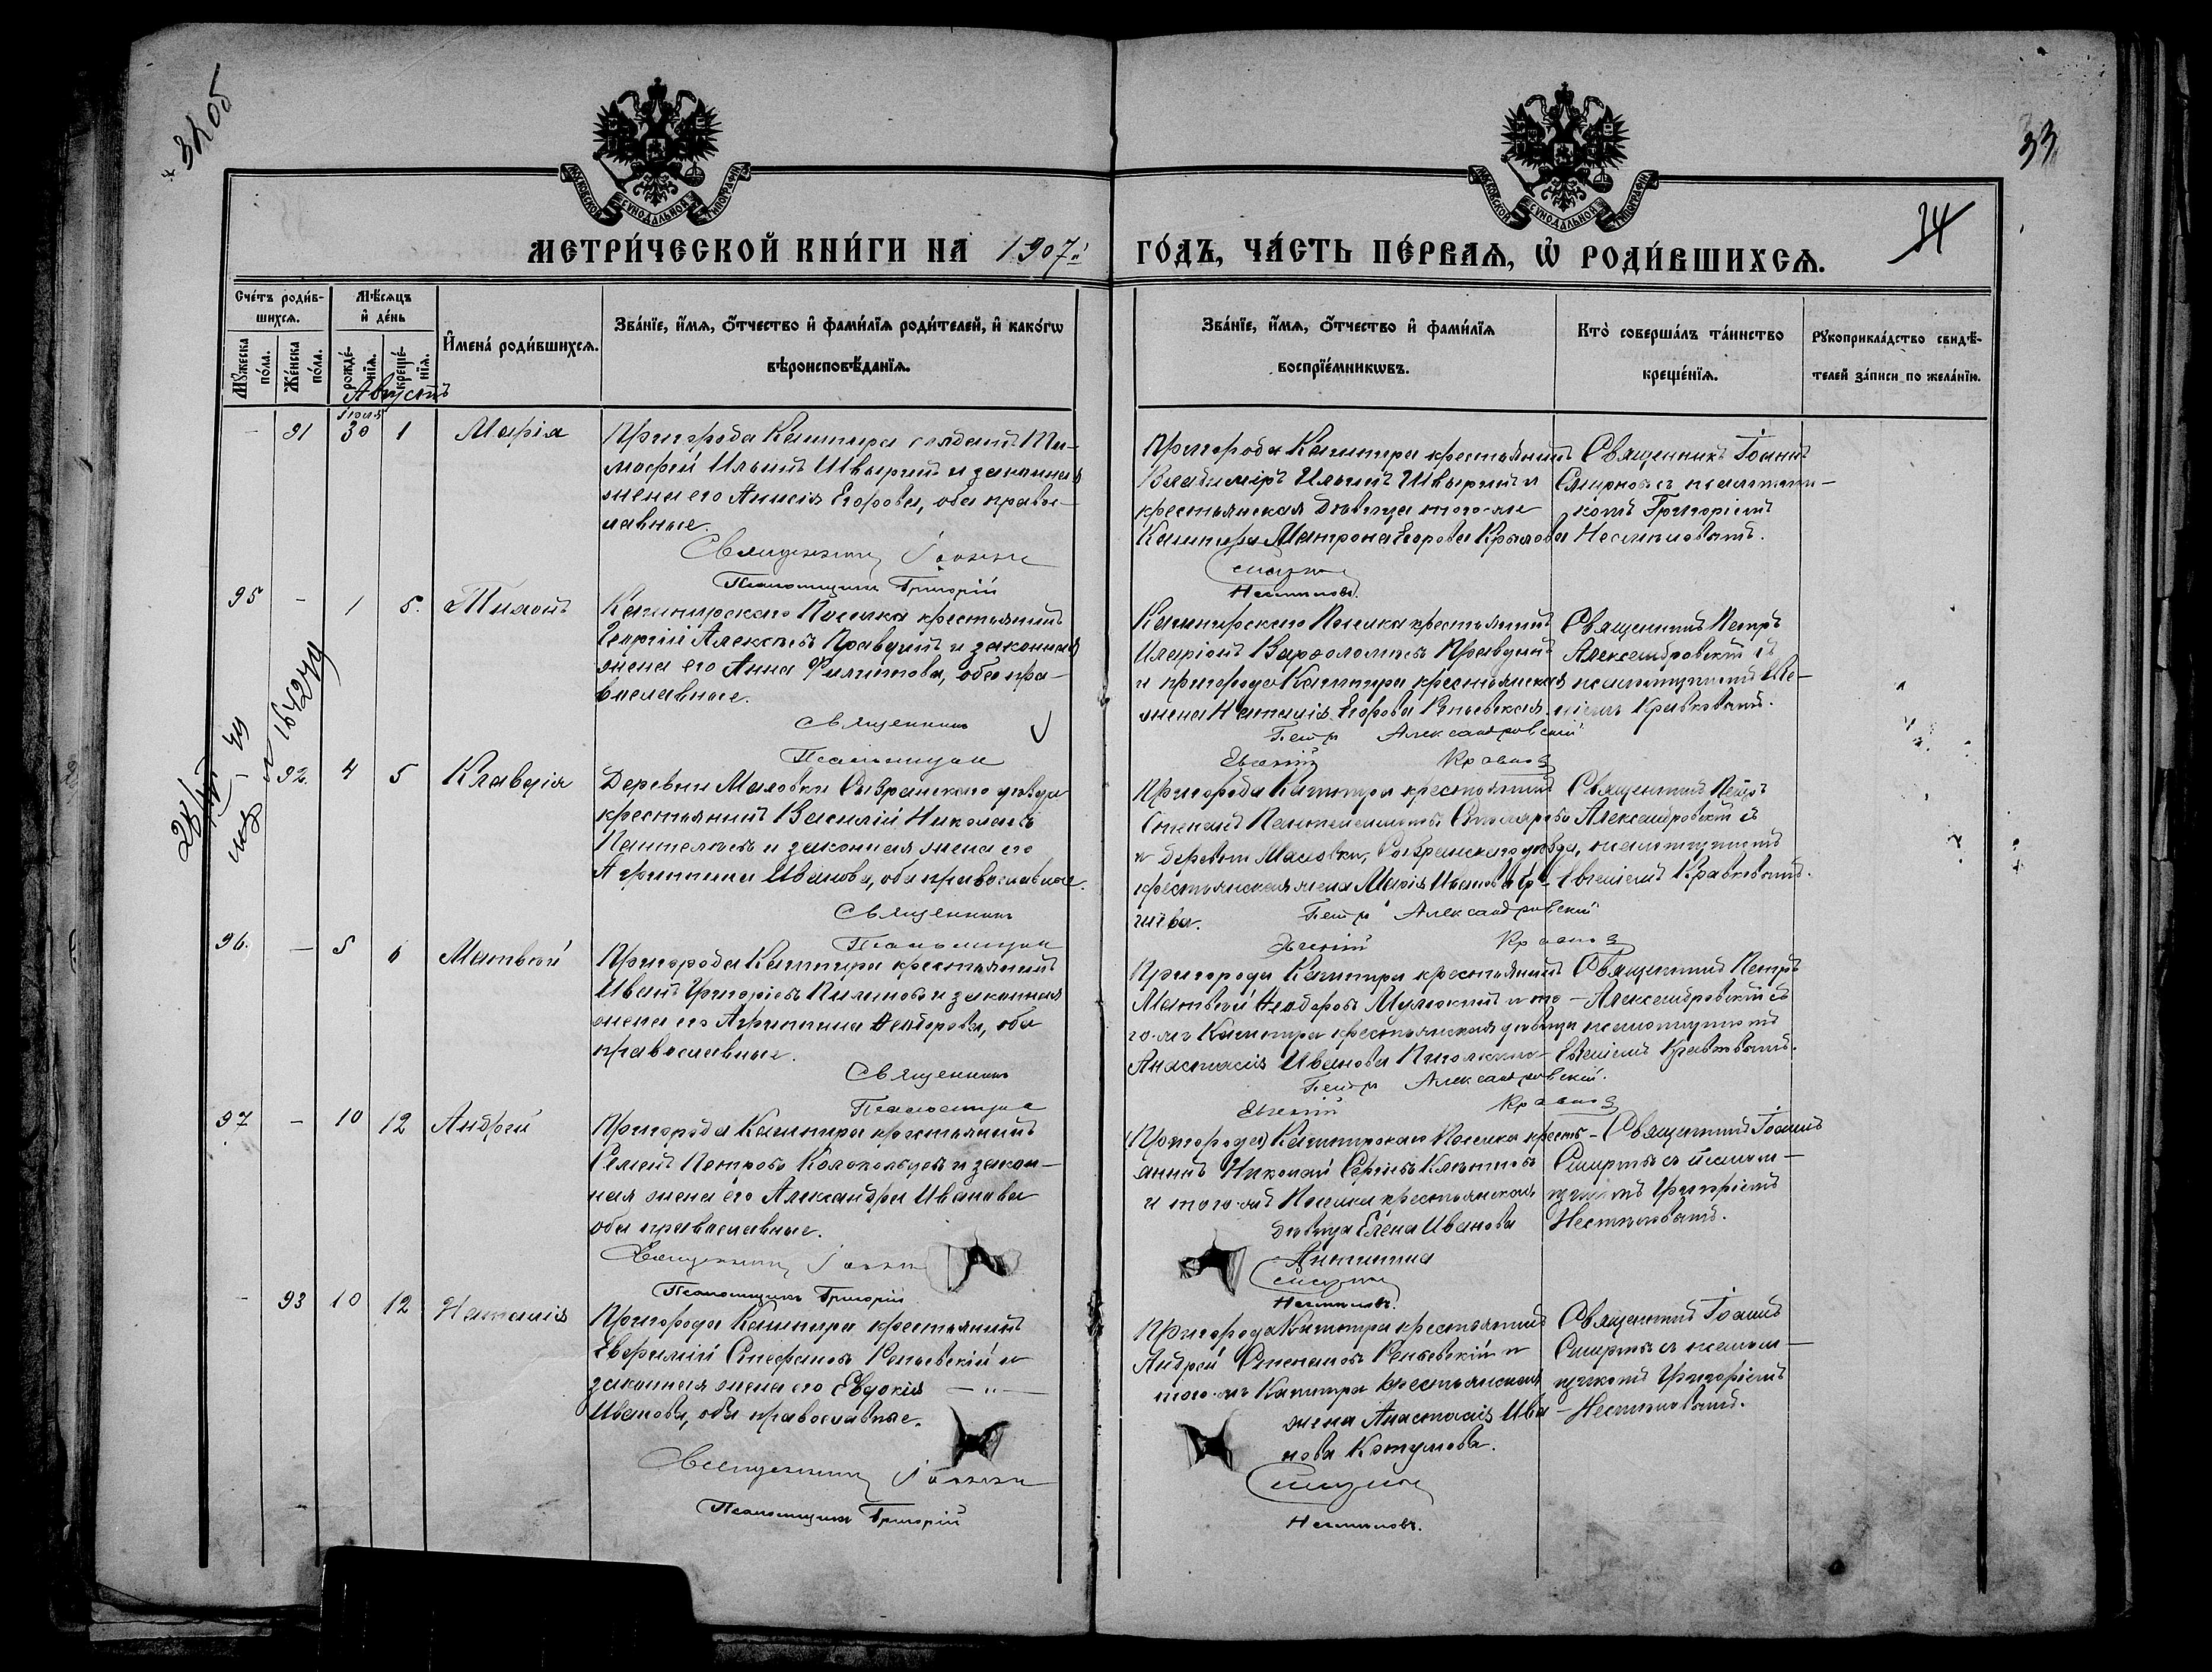 32 об
33
34
МЕТРИ́ЧЕСКОЙ КНИ́ГИ НА 1907й
ГО́ДЪ, ЧА́СТЬ ПЕ́РВАЯ, Ѿ РОДИ́ВШИХСЯ.
МОСКОВСКОЙ СУНОДАЛЬНОЙ ТИПОГРАФІИ
МОСКОВСКОЙ СУНОДАЛЬНОЙ ТИПОГРАФІИ
Сче́тъ роди́в-
шихся.
Мꙋ́жеска по́ла.
Же́нска по́ла.
Мѣ́сяцъ
и҆ де́нь
рожде́-
нїя.
креще́-
нїя.
И҆мена̀ роди́вшихся.
Зва́нїе, и҆́мя, ѻ҆́тчество и҆ фами́лїя роди́телей, и҆ како́гѡ
вѣроисповѣ́данїя.
Зва́нїе, и҆́мя, ѻ҆́тчество и҆ фами́лїя
воспрїе́мникѡвъ.
Кто̀ соверша́лъ та́инство
креще́нїя.
Рꙋкоприкла́дство свидѣ́-
телей за́писи по жела́нїю.
Августъ
- 91 Іюля 30 1 Марія
Пригорода Кашпира солдатъ Ти-
мофей Ильинъ Швыринъ и законная
жена его Анисія Егорова, оба правос-
лавные.
Священникъ Іоаннъ
Псаломщикъ Григорій
Пригорода Кашпира крестьянинъ
Владиміръ Ильинъ Швыринъ и
крестьянская дѣвица того-же
Кашпира Матрона Егорова Крылова
Смирновъ
Нестеловъ.
Священникъ Іоаннъ
Смирновъ с псаломщи-
комъ Григоріемъ
95 - 1 5. Тихонъ
Кашпирскаго Поселка крестьянинъ
Георгій Алексѣевъ Правдинъ и законная
жена его Анна Филиппова, оба пра-
вославные.
Священникъ
Псаломщикъ
Кашпирскаго Поселка крестьянинъ
Иларіонъ Варѳоломѣевъ Правдинъ
и пригорода Кашпира крестьянская
жена Наталія Егорова Репьевская.
Петръ Александровскій
Евгеній Кравковъ
Священникъ Петръ
Александровскій съ
псаломщикомъ Евге-
ніемъ Кравковымъ.
92. 4 5 Клавдія
Деревни Маловки Сызранского уѣзда
крестьянинъ Василій Николаевъ
Пантелѣевъ и законная жена его
Агриппина Иванова, оба православные.
Священникъ
Псаломщикъ
Пригорода Кашпира крестьянинъ
Степанъ Столяровъ
и деревни Маловки, Сызранскаго уѣзда,
крестьянская жена Марія Иванова
Петръ Александровскій
Евгеній Кравковъ
Священникъ Петръ
Александровскій съ
псаломщикомъ
Евгеніемъ Кравковымъ.
96. - 5 6 Матвѣй
Пригорода Кашпира крестьянинъ
Иванъ Григорьевъ Пилиповъ и законная
жена его Агриппина Ѳеодорова, оба
православные.
Священникъ
Псаломщикъ
Пригорода Кашпира крестьянинъ
Матвѣй Ѳеодоровъ и то-
го-же Кашпира крестьянская дѣвица
Анастасія Иванова
Петръ Александровскій.
Евгеній Кравковъ
Священникъ Петръ
Александровскій съ
псаломщикомъ
Евгеніемъ Кравковымъ.
97 - 10 12 Андрей
Пригорода Кашпира крестьянинъ
Семенъ Петровъ Колокольцевъ и закон-
ная жена его Александра Иванова
оба православные.
Священникъ Іоаннъ
Псаломщикъ Григорій
(Пригорода) Кашпирскаго Поселка кресть-
янинъ Николай Сергѣевъ
и того-же Поселка крестьянская
дѣвица Елена Иванова
Смирновъ
Нестеловъ.
Священникъ Іоаннъ
Смирновъ с псалом-
щикомъ Григоріемъ
- 93 10 12 Наталія
Пригорода Кашпира крестьянинъ
Евфимій Стефановъ Репьевскій и
законная жена его Евдокія — „ —
Иванова, оба православные.
Священникъ Іоаннъ
Псаломщикъ Григорій
Пригорода Кашпира крестьянинъ
Андрей Степановъ Репьевскій и
того-же Кашпира крестьянская
жена Анастасія Ива-
нова
Смирновъ
Нестеловъ.
Священникъ Іоаннъ
Смирновъ с псалом-
щикомъ Григоріемъ